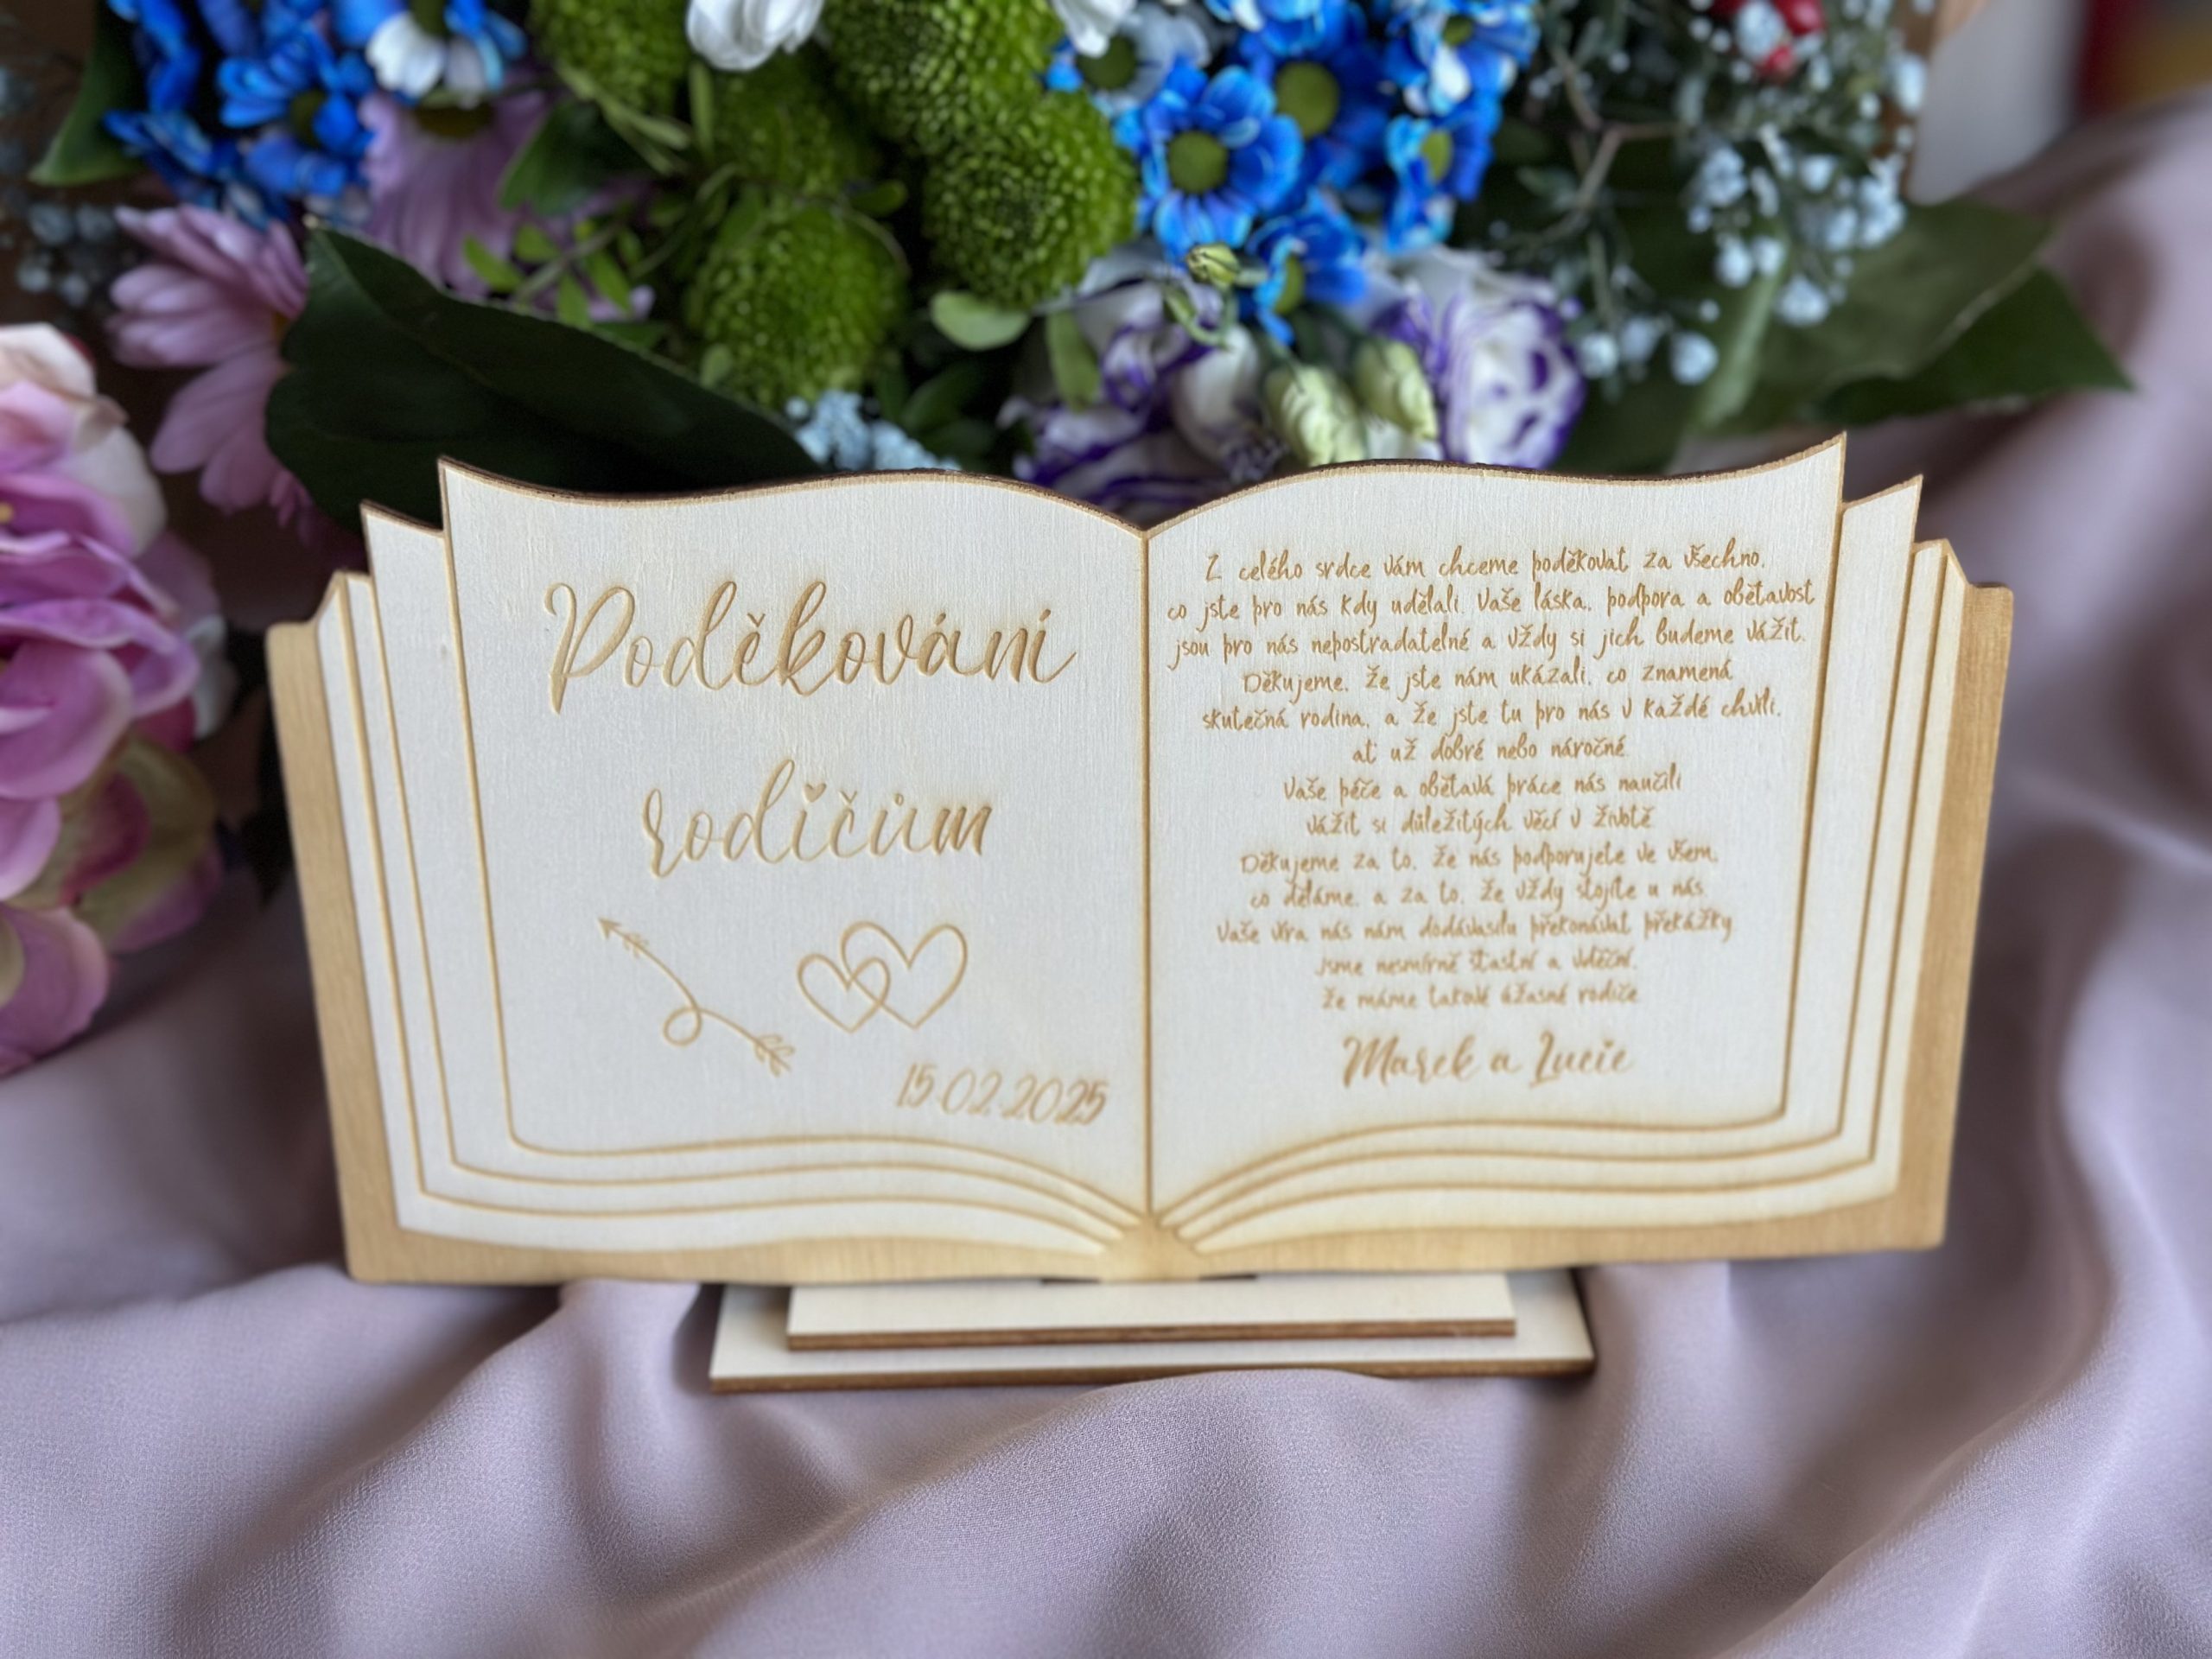 Poděkování
rodičům
15.02.2025
Z celého srdce vám chceme poděkovat za všechno,
co jste pro nás kdy udělali. Vaše láska, podpora a obětavost
jsou pro nás nepostradatelné a vždy si jich budeme vážit.
Děkujeme, že jste nám ukázali, co znamená
skutečná rodina, a že jste tu pro nás v každé chvíli,
ať už dobré nebo náročné.
Vaše péče a obětavá práce nás naučili
vážit si důležitých věcí v životě
Děkujeme za to, že nás podporujete ve všem,
co děláme, a za to, že vždy stojíte u nás.
Vaše víra nás nám dodávasílu překonávat překážky
Jsme nesmírně šťastní a vděční,
že máme takové úžasné rodiče.
Marek a Lucie